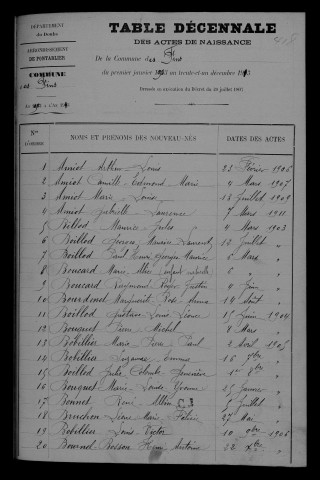 DÉPARTEMENT
du Doubs
ARRONDISSEMENT
DE PONTARLIER
COMMUNE
Les Fins
TABLE DÉCENNALE
DES ACTES DE NAISSANCE
De la Commune des Fins
du premier janvier 1903 au trente-et-un décembre
Dressée en exécution du Décret du 20 juillet 1807
Nos D'ORDRE NOMS ET PRÉNOMS DES NOUVEAU-NÉS DATES DES ACTES
1 Amiot Arthur Louis 23 Février 1906
2 Amiot Camille Edmond Marie 4 Mars 1907
3 Amiot Marie Louise 13 Juillet 1909
4 Amiot Gabrielle Laurence 7 Mars 1911
5 Billod Maurice Jules 4 Mars 1903
6 Boillod Maurice 12 Juillet "
7 Boillod Paul Henri Georges Maurice 6 Mars "
8 Boucard Marie Alice
9 Boucard Raymond Roger Justin 4 Juin "
10 Bourdenet Marguerite Rose Anna 14 Août "
11 Boillod Gustave Louis Léon 15 Juin 1904
12 Bouquet Pierre Michel 8 Mars "
13 Bobillier Marie Pierre Paul 2 Avril 1905
14 Bobillier Suzanne 16 7bre "
15 Boillod Jules Colomb 1er 8bre "
16 Bouquet Marie Louise Yvonne 25 Janvier "
17 Bonnet René Albin 5 Juillet "
18 Léon Marie 27 Mai "
19 Bobillier Louis Victor 10 9bre 1906
20 Bournel-Bosson Henri Antoine 22 "